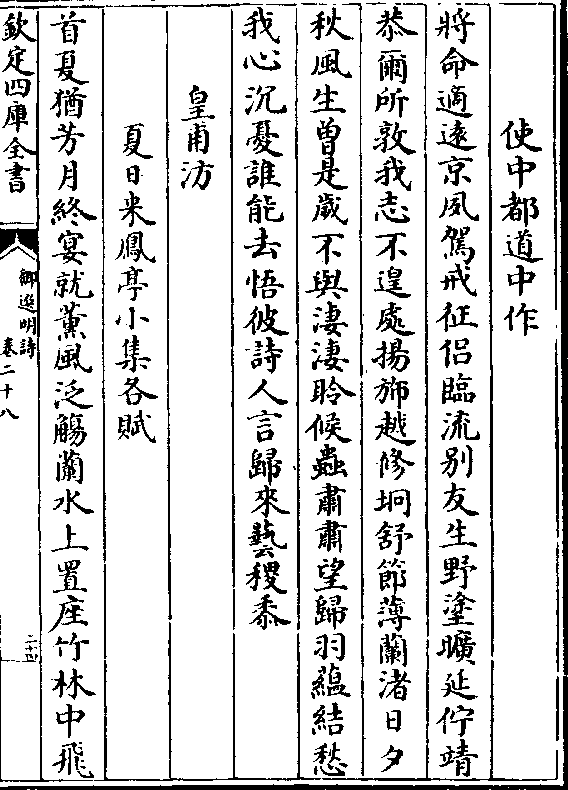 使中都道中作
將命適逺京夙駕戒征侣臨流别友生野塗曠延佇靖
恭爾所敦我志不遑處揚斾越修坰舒節薄蘭渚日夕
秋風生曽是歳不與淒淒聆候蟲肅肅望歸羽藴結愁
我心沉憂誰能去悟彼詩人言歸來藝稷黍
皇甫汸
夏日来鳳亭小集各賦
首夏猶芳月終宴就薰風泛觴蘭水上置座竹林中飛
欽定四庫全書
御選明詩
卷二十八
二十四